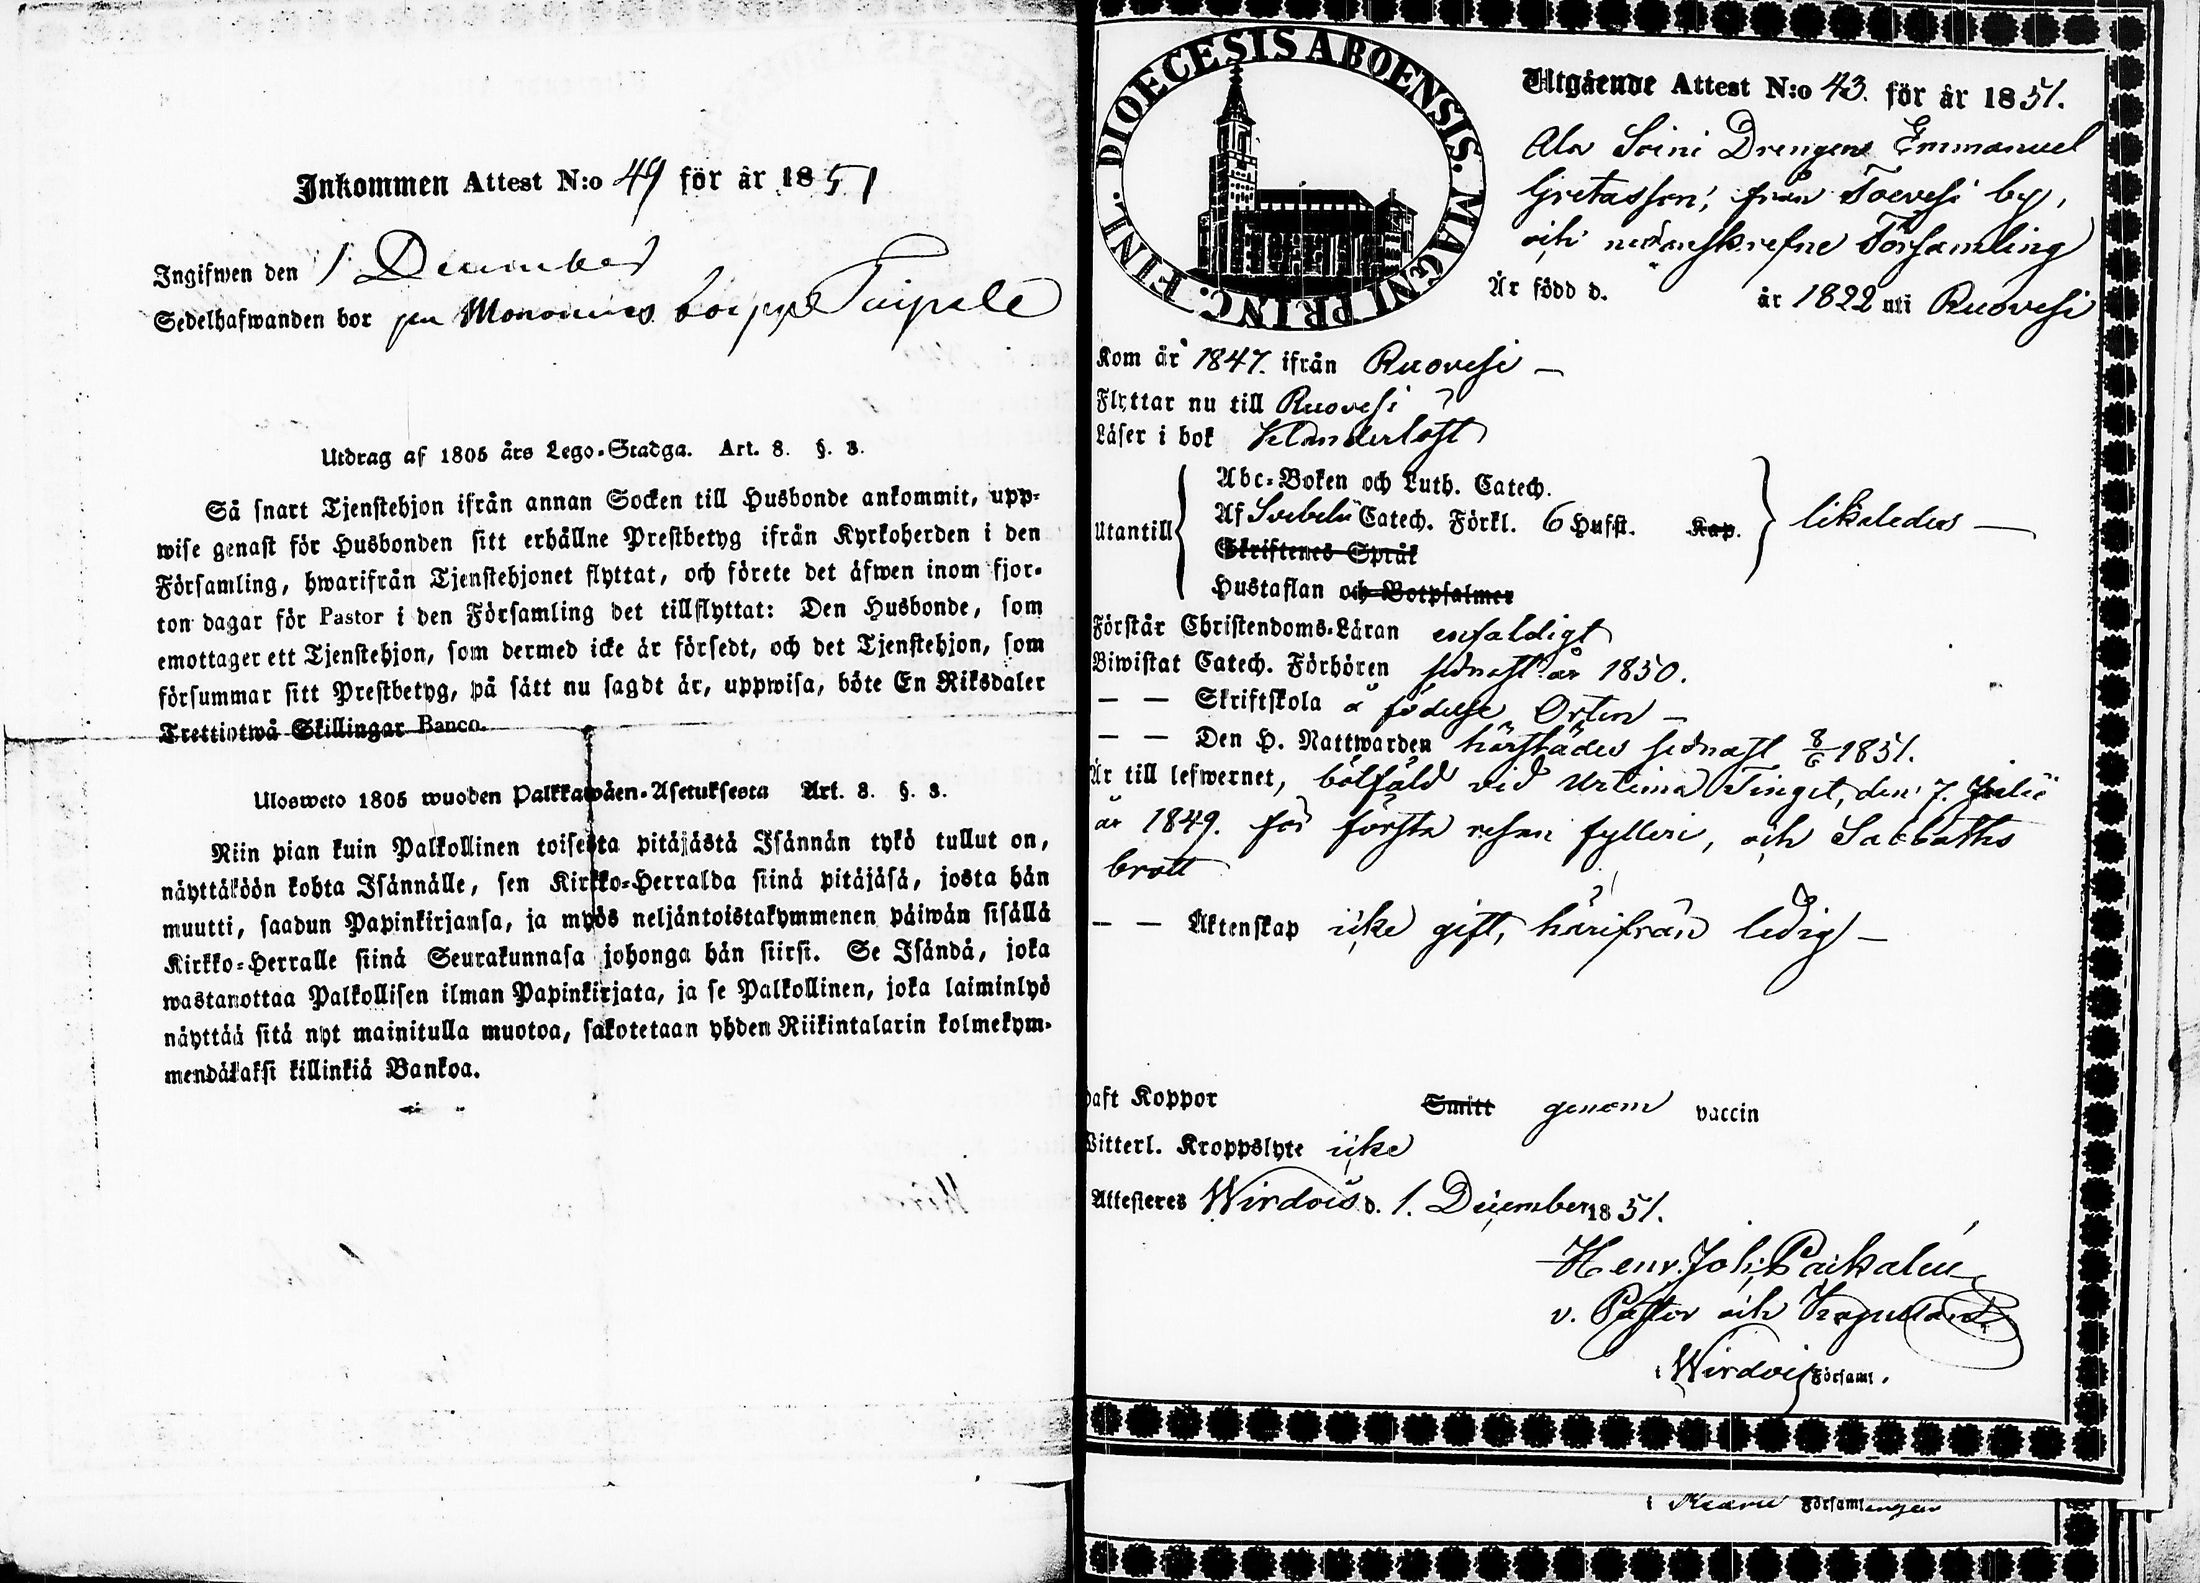 Inkommen Attest N:o 49 för år 1851
Ingifwen den 1 December
Sedelhafwanden bor på Taipale
Utdrag af 1805 års Lego-Stadga. Art. 8. §. 3.
Så snart Tjenstehjon ifrån annan Socken till Husbonde ankommit, upp-
wise genast för Husbonden sitt erhållne Prestbetyg ifrån Kyrkoherden i den
Församling, hwarifrån Tjenstehjonet flyttat, och förete det äfwen inom fjor-
ton dagar för Pastor i den Församling det tillflyttat: Den Husbonde, som
emottager ett Tjenstehjon, som dermed icke är försedt, och det Tjenstehjon, som
försummar sitt Prestbetyg, på sätt nu sagdt är, uppwisa, böte En Riksdaler
Trettiotwå Skillingar Banco.
Ulosweto 1805 wuoden Palkkawäen-Asetuksesta Art. 8. §. 3.
Niin pian kuin Palkollinen toisesta pitäjästä Isännän tykö tullut on,
näyttäköön kohta Isännälle, sen Kirkko-Herralda siinä pitäjäsä, josta hän
muutti, saadun Papinkirjansa, ja myös neljäntoistakymmenen päiwän sisällä
Kirkko-Herralle siinä Seurakunnasa johonga hän siirsi. Se Isändä, joka
wastanottaa Palkollisen ilman Papinkirjata, ja se Palkollinen, joka laiminlyö
näyttää sitä nyt mainitulla muotoa, sakotetaan yhden Riikintalarin kolmekym-
mendäkaksi killinkiä Bankoa.
DIOECESIS ABOENSIS. MAGNI PRINC. FINL.
Utgående Attest N:o 43. för år 1851.
Ala Soini Drengen Emmanuel
Gretasson, från Toevesi by,
och nedanskrefne Församling
Är född d. år 1822 uti Ruovesi
Kom år 1847. ifrån Ruovesi —
Flyttar nu till Ruovesi
Läser i bok Klanderlöst
Utantill
Abc-Boken och Luth. Catech.
Af Svebelii Catech. Förkl. 6 Hufst. Kap.
Skriftenes Språk
Hustaflan och Botpsalmer
likaledes —
Förstår Christendoms-Läran enfaldigt
Biwistat Catech. Förhören sednast år 1850.
— — Skriftskola å födelse Orten —
— — Den H. Nattwarden härstädes sednast 8/6 1851.
Är till lefwernet, bötfäld vid Urtima Tinget, den 7. Julii
år 1849. för första resan fylleri, och Sabbaths
brott
— — Äktenskap icke gift, härifrån ledig —
haft Koppor Smitt genom vaccin
Witterl. Kroppslyte icke
Attesteras Wirdois d. 1. December 1851.
Henr. Joh. Paikalén
v. Pastor och
i Wirdois Församl.
i Församlingen